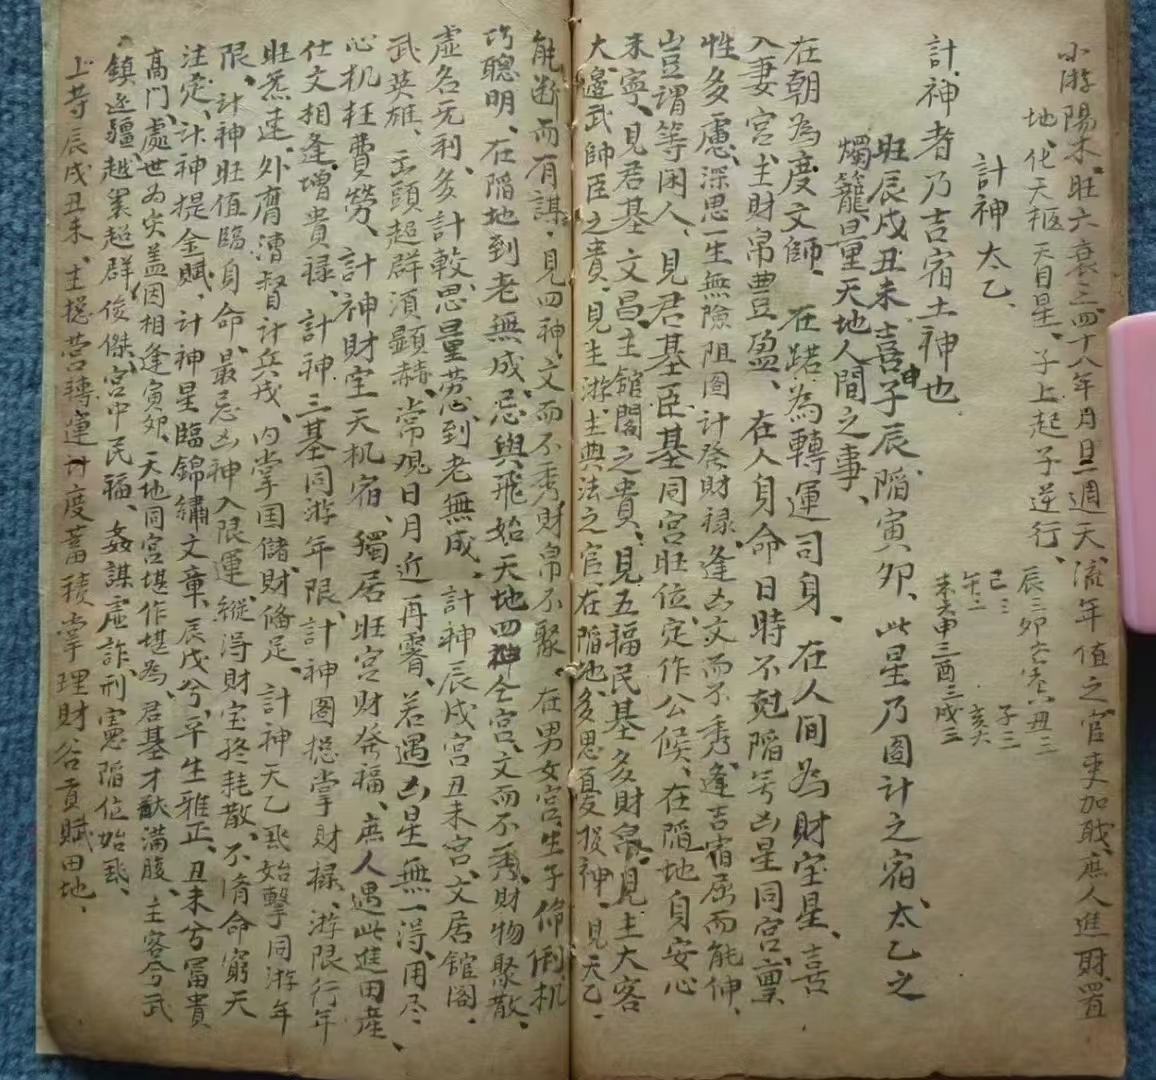 小游陽木、旺六衰三、四十八年月日一週天、流年值之官吏加職、庶人進財置
地、化天樞天目星、子上起子逆行、
辰三卯六寅六丑三
子三
亥六
巳三
午二
未六申三酉三戌三
計神太乙、
計神者乃吉宿土神也
旺辰戌丑未喜子申辰、陷寅卯、此星乃圖計之宿、太乙之
燭籠、量天地人間之事、
在朝為度文師、在路為轉運司身、在人间為財宝星、喜
入妻宮、主財帛豊盈、在人身命日時不尅陷与凶星同宮、禀
性多慮、深思一生無險阻圖計発財禄、逢凶文而不秀、逢吉宿屈而能伸、
豈謂等闲人、見君基臣基同宮旺位、定作公候、在陷地自安心
未寧、見君基文昌、主館閣之貴、見五福民基多財帛、見主大客
大邊武帥臣之貴、見主游、主典法之官、在陷地、多思憂損神、見天乙、
能断而有謀、見四神、文而不秀財帛不聚、在男女宮、生子伶俐、机
巧聰明、在陷地到老無成、忌與飛始天地四神仝宮、文而不秀、財物聚散、
虛名无利、多計較、思量劳心、到老無成、計神辰戌宮丑未宮、文居館阁、
武英雄、出頭超群須顕赫、常观日月近再霽、若遇凶星無一得、用尽
心机枉費勞、計神財宝天机宿、獨居旺宮財発福、庶人遇此進田産、
仕文相逢增貴禄、計神三基同游年限、計神圖挖掌財禄、游限行年
旺炁速、外膺漕督計兵戎、内掌国儲財俻足、計神天乙飛始擊同游年
限、計神旺值臨身命、最忌凶神入限運、縱得財宝終耗散、不脩命窮天
注定、計神提金賦、計神星臨錦繡文章、辰戌兮、平生雅正、丑未兮富貴
高門、處世為尖盖因相逢寅夘、天地同宮堪作堪為、君基才猷满腹、主客兮武
鎮邊疆、越衆超群俊傑、宮中民福、姦謀虛詐、刑憲陷位始飛、
上苛辰戌丑未、主挖营轉運計度蓄積、掌理財谷貢賦田地、